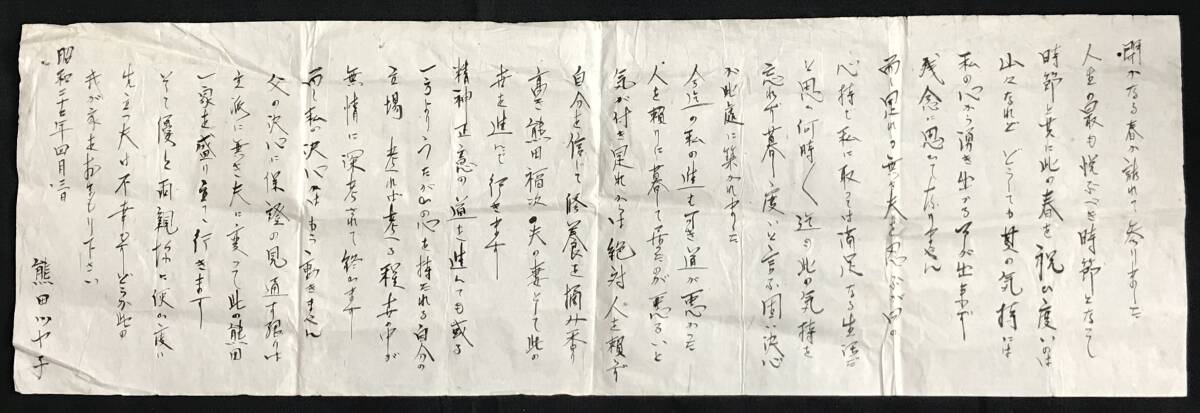 開かなる春が訪れて参りました
人生の最も悦ぶべき時節となって
時節と共に此の春を祝ひ度いのは
山々なれど どうしても其の気持は
私の心から湧き出づる事が出来ず
残念に思って居ります
而し思れる無き夫を思
心持ちで私に取っては満足なる生活
と思ひ何時々々迄も此の気持を
忘れず暮し度いと言ふ固い決心
が此庭に築かれました
今迄の私の進も可き道が悪かった
人を頼りに暮して居たのが悪るいと
気が付き是れからは絶対人を頼らず
自分を信じて修養を積み
高き熊田福次の夫の妻として此の
世を進んで行きます
精神正意の道を進んでも或る
一方よりうたがひの心を持たれる自分の
立場 考れば考へる程世の中が
無情に深
而し私の決心はもう動きません
父の決心に保證の見通す限りは
立派に無き夫に変って此の熊田
一家を盛り立てて行きます
そして優と両親
先立つ夫は不幸
我が家をおまもり下さい
昭和二十三年四月三日
熊田ツヤ子